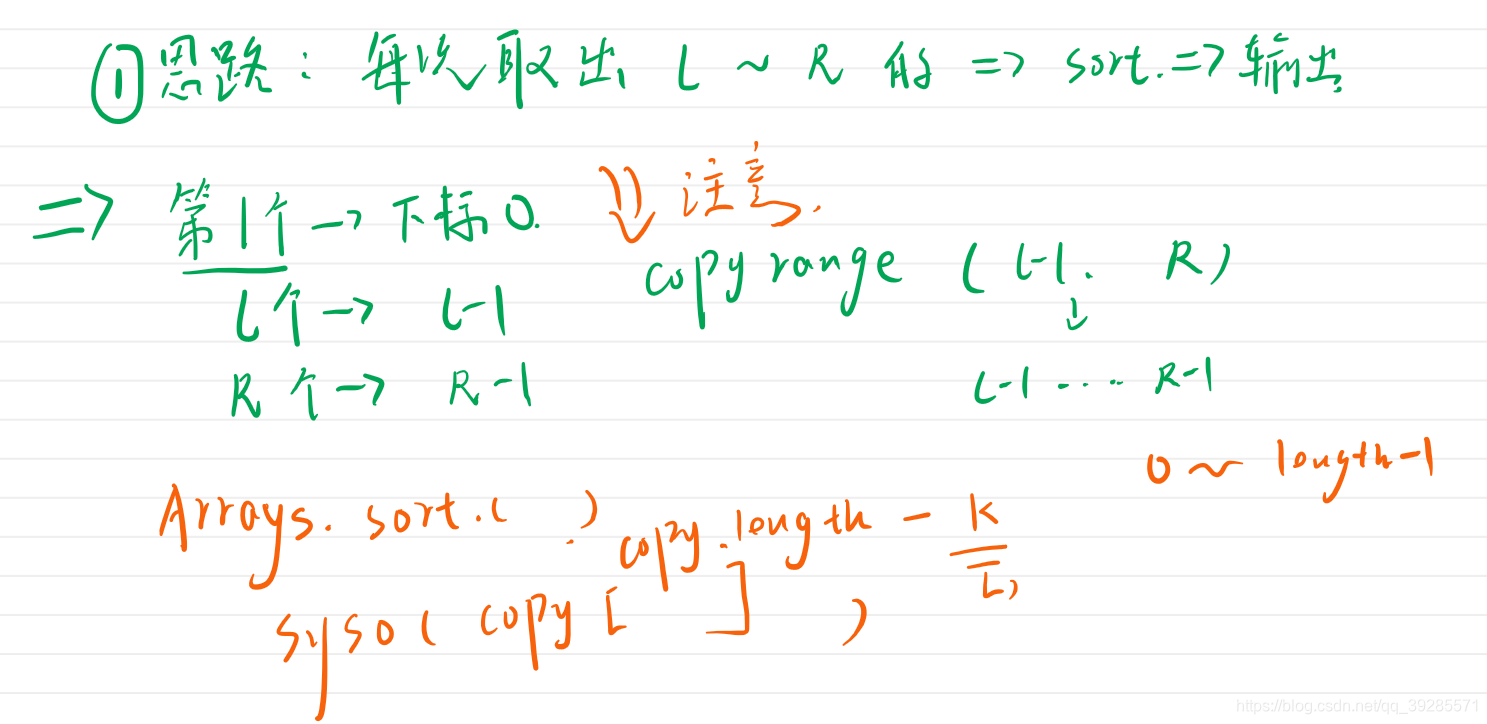 ① 思路：每次取出 L ~ R 的 => sort. => 输出
=> 第1个 -> 下标0.
注意.
copy range ( L-1. R )
L个 -> L-1
R个 -> R-1
L-1 .... R-1
0 ~ length-1
Arrays. sort. ( )
copy.length - K
syso ( copy [ ] )
https://blog.csdn.net/qq_39285571